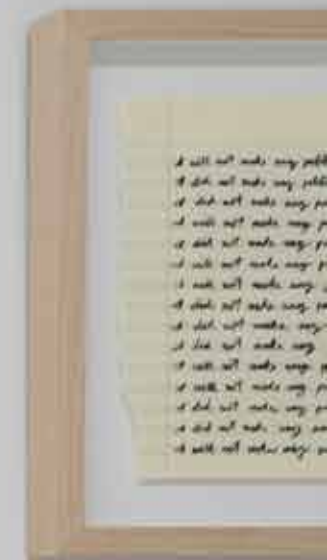 I will not make any
I did not make any
I did not make any
I will not make any
I did not make any
I will not make any
I will not make any
I did not make any
I did not make any
I did not make any
I will not make any
I will not make any
I did not make any
I did not make any
I will not make any